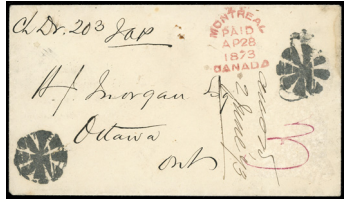 Ch Dr. 203 JAP
MONTREAL
PAID
AP 28
1873
CANADA
H J Morgan
Ottawa
Ont
3